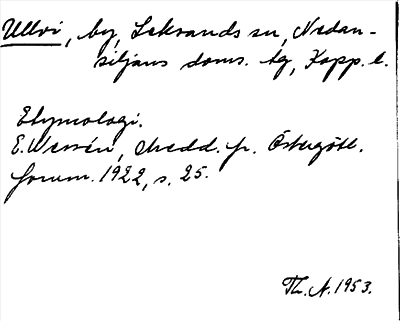 Ullvi, by, Leksands sn, Nedan-
siljans doms. tg, Kopp. l.
Etymologi.
E. Wessén, Medd. fr. Östergötl.
fornm. 1922, s. 25.
Th. A. 1953.